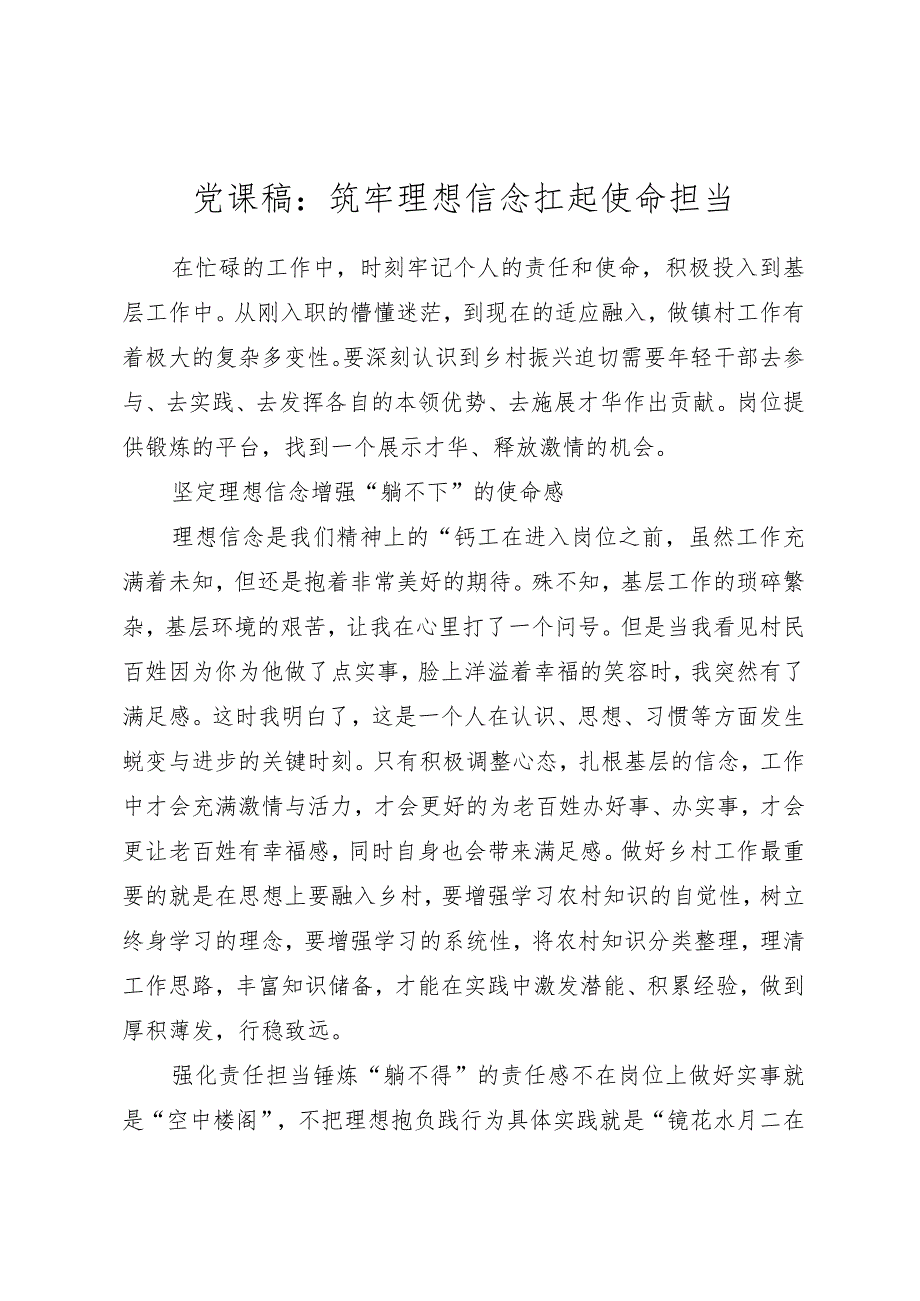 党课稿：筑牢理想信念扛起使命担当
在忙碌的工作中，时刻牢记个人的责任和使命，积极投入到基
层工作中。从刚入职的懵懂迷茫，到现在的适应融入，做镇村工作有
着极大的复杂多变性。要深刻认识到乡村振兴迫切需要年轻干部去参
与、去实践、去发挥各自的本领优势、去施展才华作出贡献。岗位提
供锻炼的平台，找到一个展示才华、释放激情的机会。
坚定理想信念增强“躺不下”的使命感
理想信念是我们精神上的“钙工在进入岗位之前，虽然工作充
满着未知，但还是抱着非常美好的期待。殊不知，基层工作的琐碎繁
杂，基层环境的艰苦，让我在心里打了一个问号。但是当我看见村民
百姓因为你为他做了点实事，脸上洋溢着幸福的笑容时，我突然有了
满足感。这时我明白了，这是一个人在认识、思想、习惯等方面发生
蜕变与进步的关键时刻。只有积极调整心态，扎根基层的信念，工作
中才会充满激情与活力，才会更好的为老百姓办好事、办实事，才会
更让老百姓有幸福感，同时自身也会带来满足感。做好乡村工作最重
要的就是在思想上要融入乡村，要增强学习农村知识的自觉性，树立
终身学习的理念，要增强学习的系统性，将农村知识分类整理，理清
工作思路，丰富知识储备，才能在实践中激发潜能、积累经验，做到
厚积薄发，行稳致远。
强化责任担当锤炼“躺不得”的责任感不在岗位上做好实事就
是“空中楼阁”，不把理想抱负践行为具体实践就是“镜花水月二在